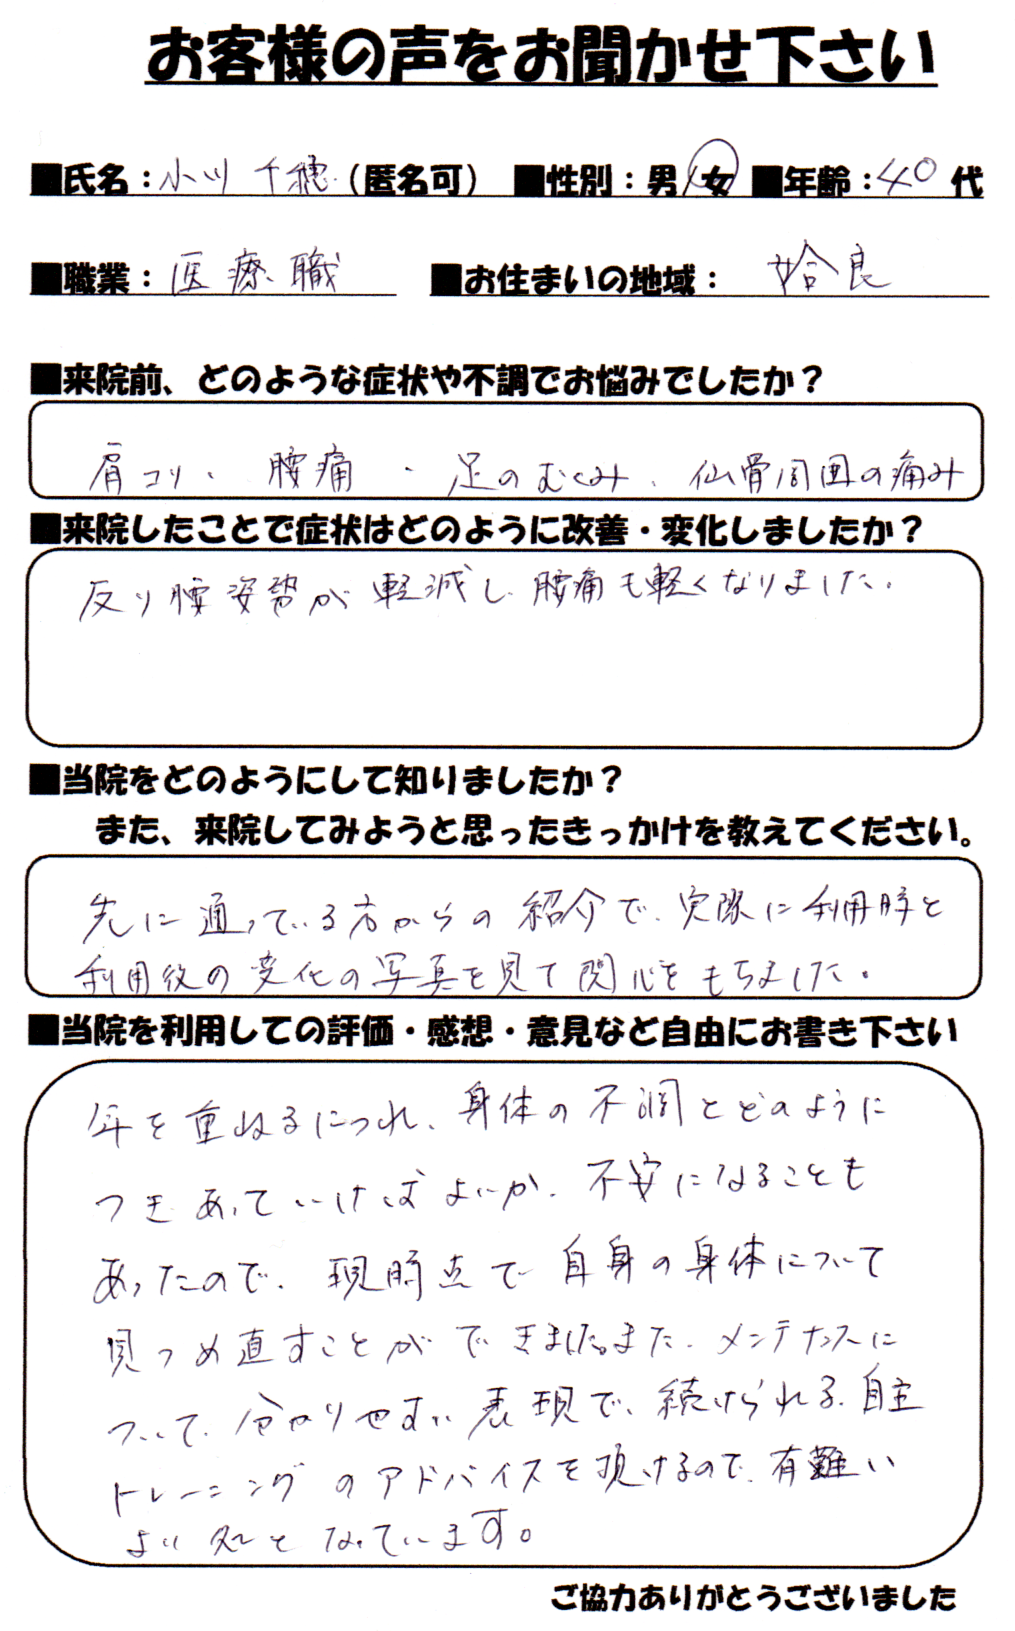 お客様の声をお聞かせ下さい
■氏名：小川 千穂（匿名可） ■性別：男/女 ■年齢：40代
■職業：医療職 ■お住まいの地域：姶良
■来院前、どのような症状や不調でお悩みでしたか？
肩コリ、腰痛・足のむくみ、仙骨周囲の痛み
■来院したことで症状はどのように改善・変化しましたか？
反り腰姿勢が軽減し、腰痛も軽くなりました。
■当院をどのようにして知りましたか？
また、来院してみようと思ったきっかけを教えてください。
先に通っている方からの紹介で、実際に利用時と
利用後の変化の写真を見て関心をもちました。
■当院を利用しての評価・感想・意見など自由にお書き下さい
年を重ねるにつれ、身体の不調とどのように
つきあっていけばよいか、不安になることも
あったので、現時点で自身の身体について
見つめ直すことができました。また、メンテナンスに
ついて、分かりやすい表現で、続けられる、自主
トレーニングのアドバイスを頂けるので、有難い
より処となっています。
ご協力ありがとうございました